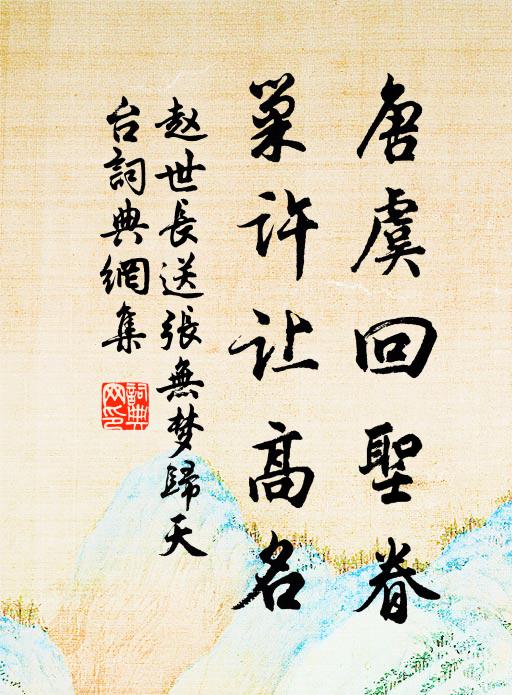 唐虞回聖眷
巢许让高名
赵世長送張無梦歸天
台詞典網集
詞典
网印